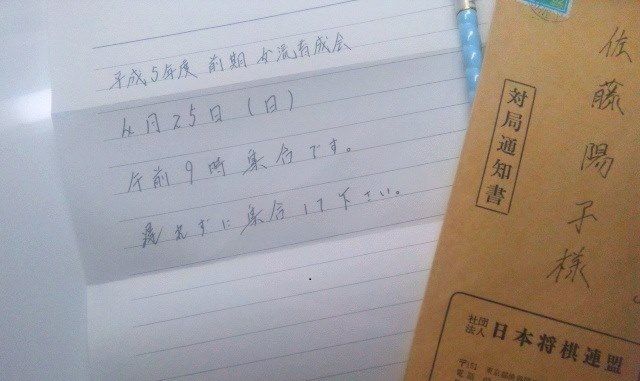 平成5年度 前期 女流育成会
4月25日(日)
午前9時集合です。
遅れずに集合して下さい。
対局通知書
佐藤陽子様
社団法人 日本将棋連盟